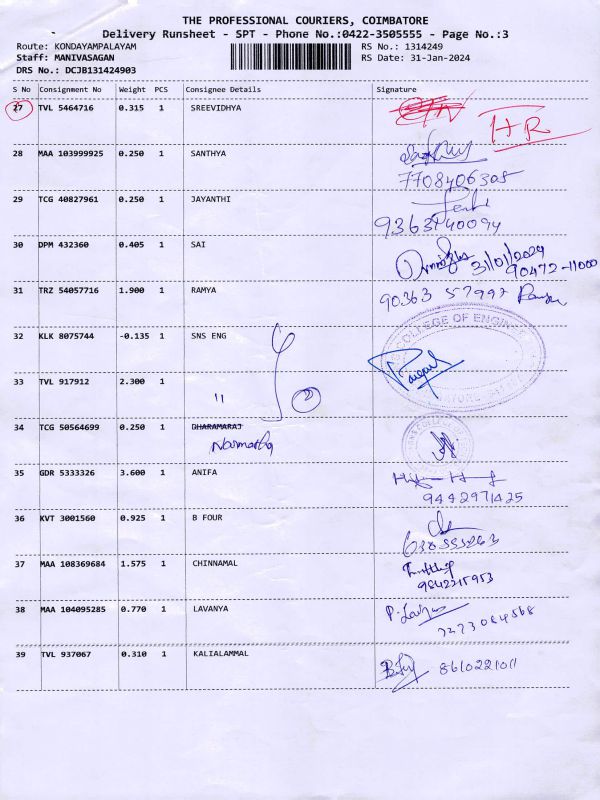 THE PROFESSIONAL COURIERS, COIMBATORE
Delivery Runsheet - SPT - Phone No.:0422-3505555 - Page No.:3
Route: KONDAYAMPALAYAM RS No.: 1314249
Staff: MANIVASAGAN RS Date: 31-Jan-2024
DRS No.: DCJB131424903
S No Consignment No Weight PCS Consignee Details Signature
27 TVL 5464716 0.315 1 SREEVIDHYA
HR
28 MAA 103999925 0.250 1 SANTHYA
7708406305
29 TCG 40827961 0.250 1 JAYANTHI
9363140094
30 DPM 432360 0.405 1 SAI
31/01/2024
90472-11000
31 TRZ 54057716 1.900 1 RAMYA
90363 57997 Ramya
32 KLK 8075744 -0.135 1 SNS ENG
COLLEGE OF ENGINEE
33 TVL 917912 2.300 1
" 2
34 TCG 50564699 0.250 1 DHARAMARAJ
Narmatha
35 GDR 5333326 3.600 1 ANIFA
9442971425
36 KVT 3001560 0.925 1 B FOUR
37 MAA 108369684 1.575 1 CHINNAMAL
9842215953
38 MAA 104095285 0.770 1 LAVANYA
P. Lavanya
7373084568
39 TVL 937067 0.310 1 KALIALAMMAL
8610221011